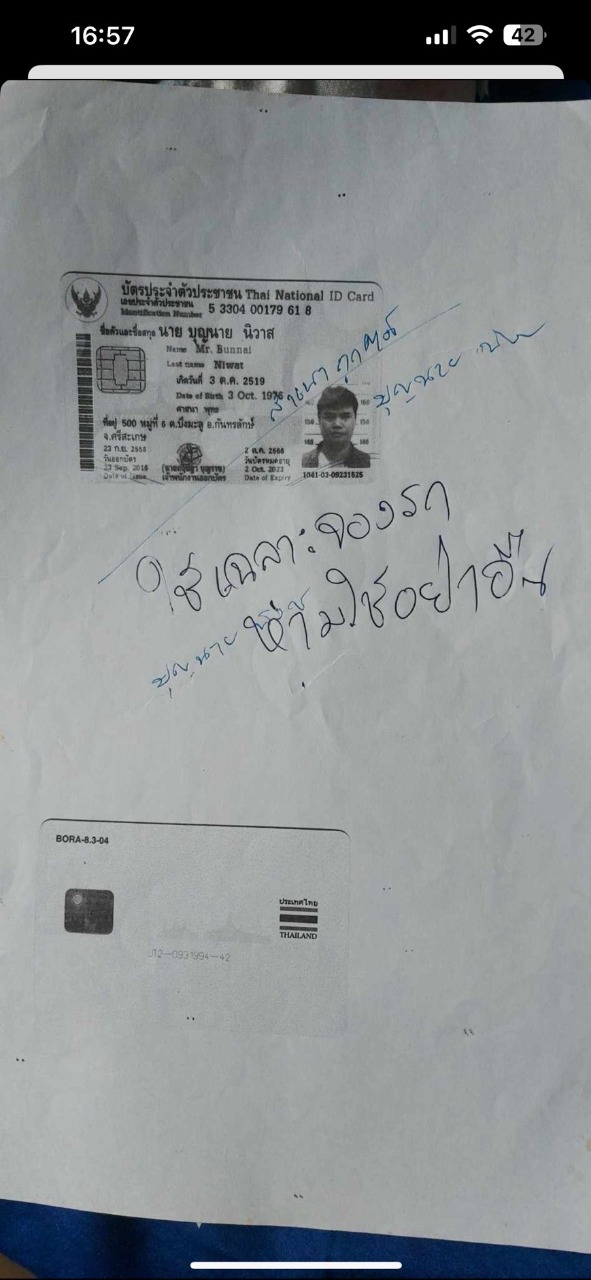 16:57
42
บัตรประจำตัวประชาชน Thai National ID Card
เลขประจำตัวประชาชน
Identification Number 5 3304 00179 61 8
ชื่อตัวและชื่อสกุล นาย บุญนาย นิวาส
Name Mr. Bunnai
Last name Niwat
เกิดวันที่ 3 ต.ค. 2519
Date of Birth 3 Oct. 1976
ศาสนา พุทธ
ที่อยู่ 500 หมู่ที่ 6 ต.บึงมะลู อ.กันทรลักษ์
จ.ศรีสะเกษ
วันออกบัตร
Date of Issue
เจ้าพนักงานออกบัตร
2 ต.ค. 2566
วันบัตรหมดอายุ
2 Oct. 2023
Date of Expiry
1041-03-09231525
สำเนาถูกต้อง
บุญนาย
ใช้เฉพาะจองรถ
ห้ามใช้อย่าอื่น
บุญนาย
BORA-8.3-04
ประเทศไทย
THAILAND
JT2-0931994-42